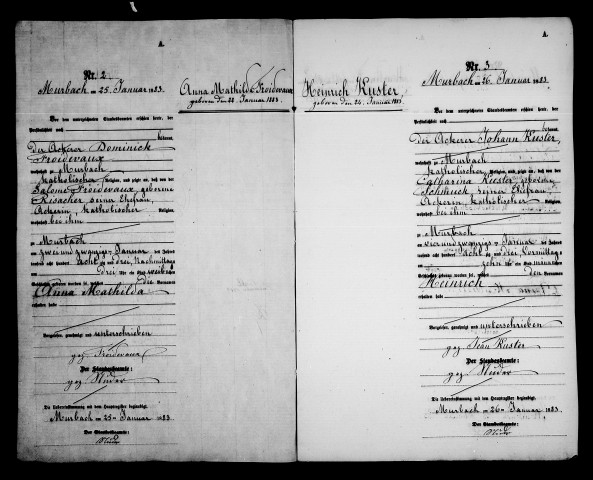 A.
Nr. 2
Murbach am 25. Januar 1883.
Anna Mathilda Froidevaux
geboren den 22. Januar 1883.
Vor dem unterzeichneten Standesbeamten erschien heute, der
Persönlichkeit nach
kannt,
der Ackerer Dominick
Froidevaux
wohnhaft zu Murbach
katholischer Religion, und zeigte an, daß von der
Salome Froidevaux, geborene
Risacher seiner Ehefrau,
Ackerin, katholischer Religion,
wohnhaft bei ihm
zu Murbach
am zweiundzwanzigsten Januar des Jahres
tausend acht hundert achtzig und drei, Nachmittags
um drei Uhr ein Kind weiblichen
Geschlechts geboren worden sei, welches die Vornamen
Anna Mathilda
erhalten habe
Vorgelesen, genehmigt und unterschrieben
gez. Froidevaux
Der Standesbeamte:
gez.
Die Uebereinstimmung mit dem Hauptregister beglaubigt
Murbach am 25ten Januar 1883.
Der Standesbeamte.
A.
Nr. 3
Murbach am 26. Januar 1883.
Heinrich Kuster
geboren den 24. Januar 1883.
Vor dem unterzeichneten Standesbeamten erschien heute, der
Persönlichkeit nach
kannt,
der Ackerer Johann Kuster,
wohnhaft zu Murbach
katholischer Religion, und zeigte an, daß von der
Catharina Kuster geborene
seiner Ehefrau,
Ackerin, katholischer Religion,
wohnhaft bei ihm
zu Murbach
am vierundzwanzigsten Januar des Jahres
tausend acht hundert achtzig und drei, Vormittags
um zehn Uhr ein Kind männlichen
Geschlechts geboren worden sei, welches den Vornamen
Heinrich
erhalten habe
Vorgelesen, genehmigt und unterschrieben
gez. Jean Kuster
Der Standesbeamte:
gez.
Die Uebereinstimmung mit dem Hauptregister beglaubigt
Murbach am 26ten Januar 1883.
Der Standesbeamte.